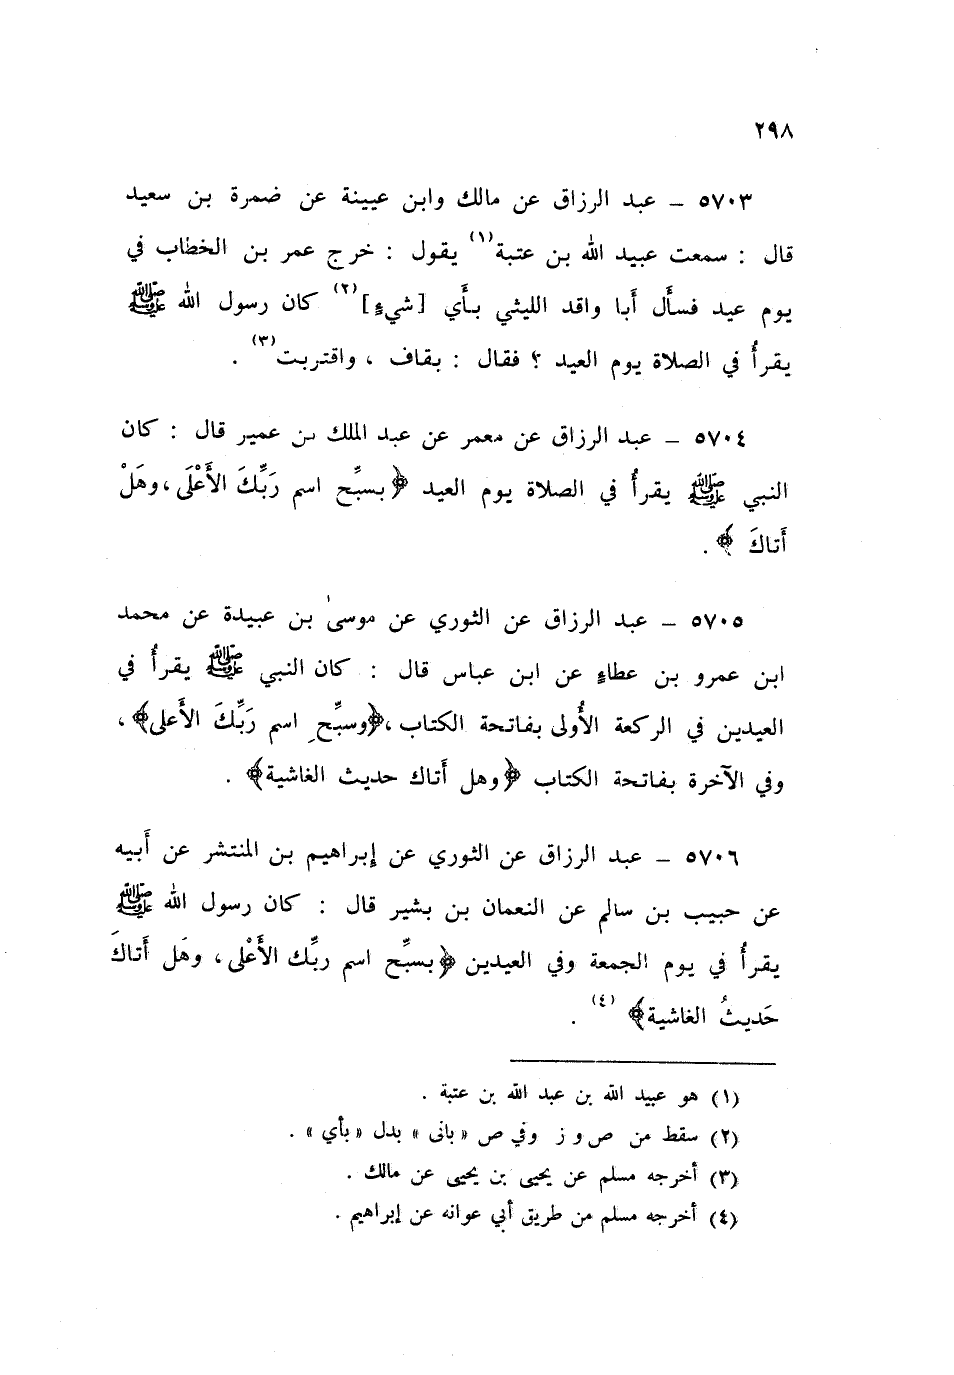 ٢٩٨
٥٧٠٣ - عبد الرزاق عن مالك وابن عيينة عن ضمرة بن سعيد
قال : سمعت عبيد الله بن عتبة(١) يقول : خرج عمر بن الخطاب في
يوم عيد فسأل أبا واقد الليثي بأي [شيءٍ](٢) كان رسول الله ﷺ
يقرأُ في الصلاة يوم العيد ؟ فقال : بقاف ، واقتربت(٣) .
٥٧٠٤ - عبد الرزاق عن معمر عن عبد الملك بن عمير قال : كان
النبي ﷺ يقرأُ في الصلاة يوم العيد ﴿بسبِّح اسم رَبِّكَ الأَعْلَى ، وهَلْ
أَتاكَ ﴾ .
٥٧٠٥ - عبد الرزاق عن الثوري عن موسىٰ بن عبيدة عن محمد
ابن عمرو بن عطاءٍ عن ابن عباس قال : كان النبي ﷺ يقرأُ في
العيدين في الركعة الأُولى بفاتحة الكتاب ، ﴿وسبِّحِ اسم رَبِّكَ الأَعلى﴾ ،
وفي الآخرة بفاتحة الكتاب ﴿وهل أَتاك حديث الغاشية﴾ .
٥٧٠٦ - عبد الرزاق عن الثوري عن إبراهيم بن المنتشر عن أَبيه
عن حبيب بن سالم عن النعمان بن بشير قال : كان رسول الله ﷺ
يقرأُ في يوم الجمعة وفي العيدين ﴿بسبِّح اسم ربِّك الأَعْلى ، وهَل أَتاكَ
حَديثُ الغاشية﴾ (٤) .
(١) هو عبيد الله بن عبد الله بن عتبة .
(٢) سقط من ص و ز وفي ص « بانى » بدل « بأي » .
(٣) أخرجه مسلم عن يحيى بن يحيى عن مالك .
(٤) أخرجه مسلم من طريق أبي عوانه عن إبراهيم .